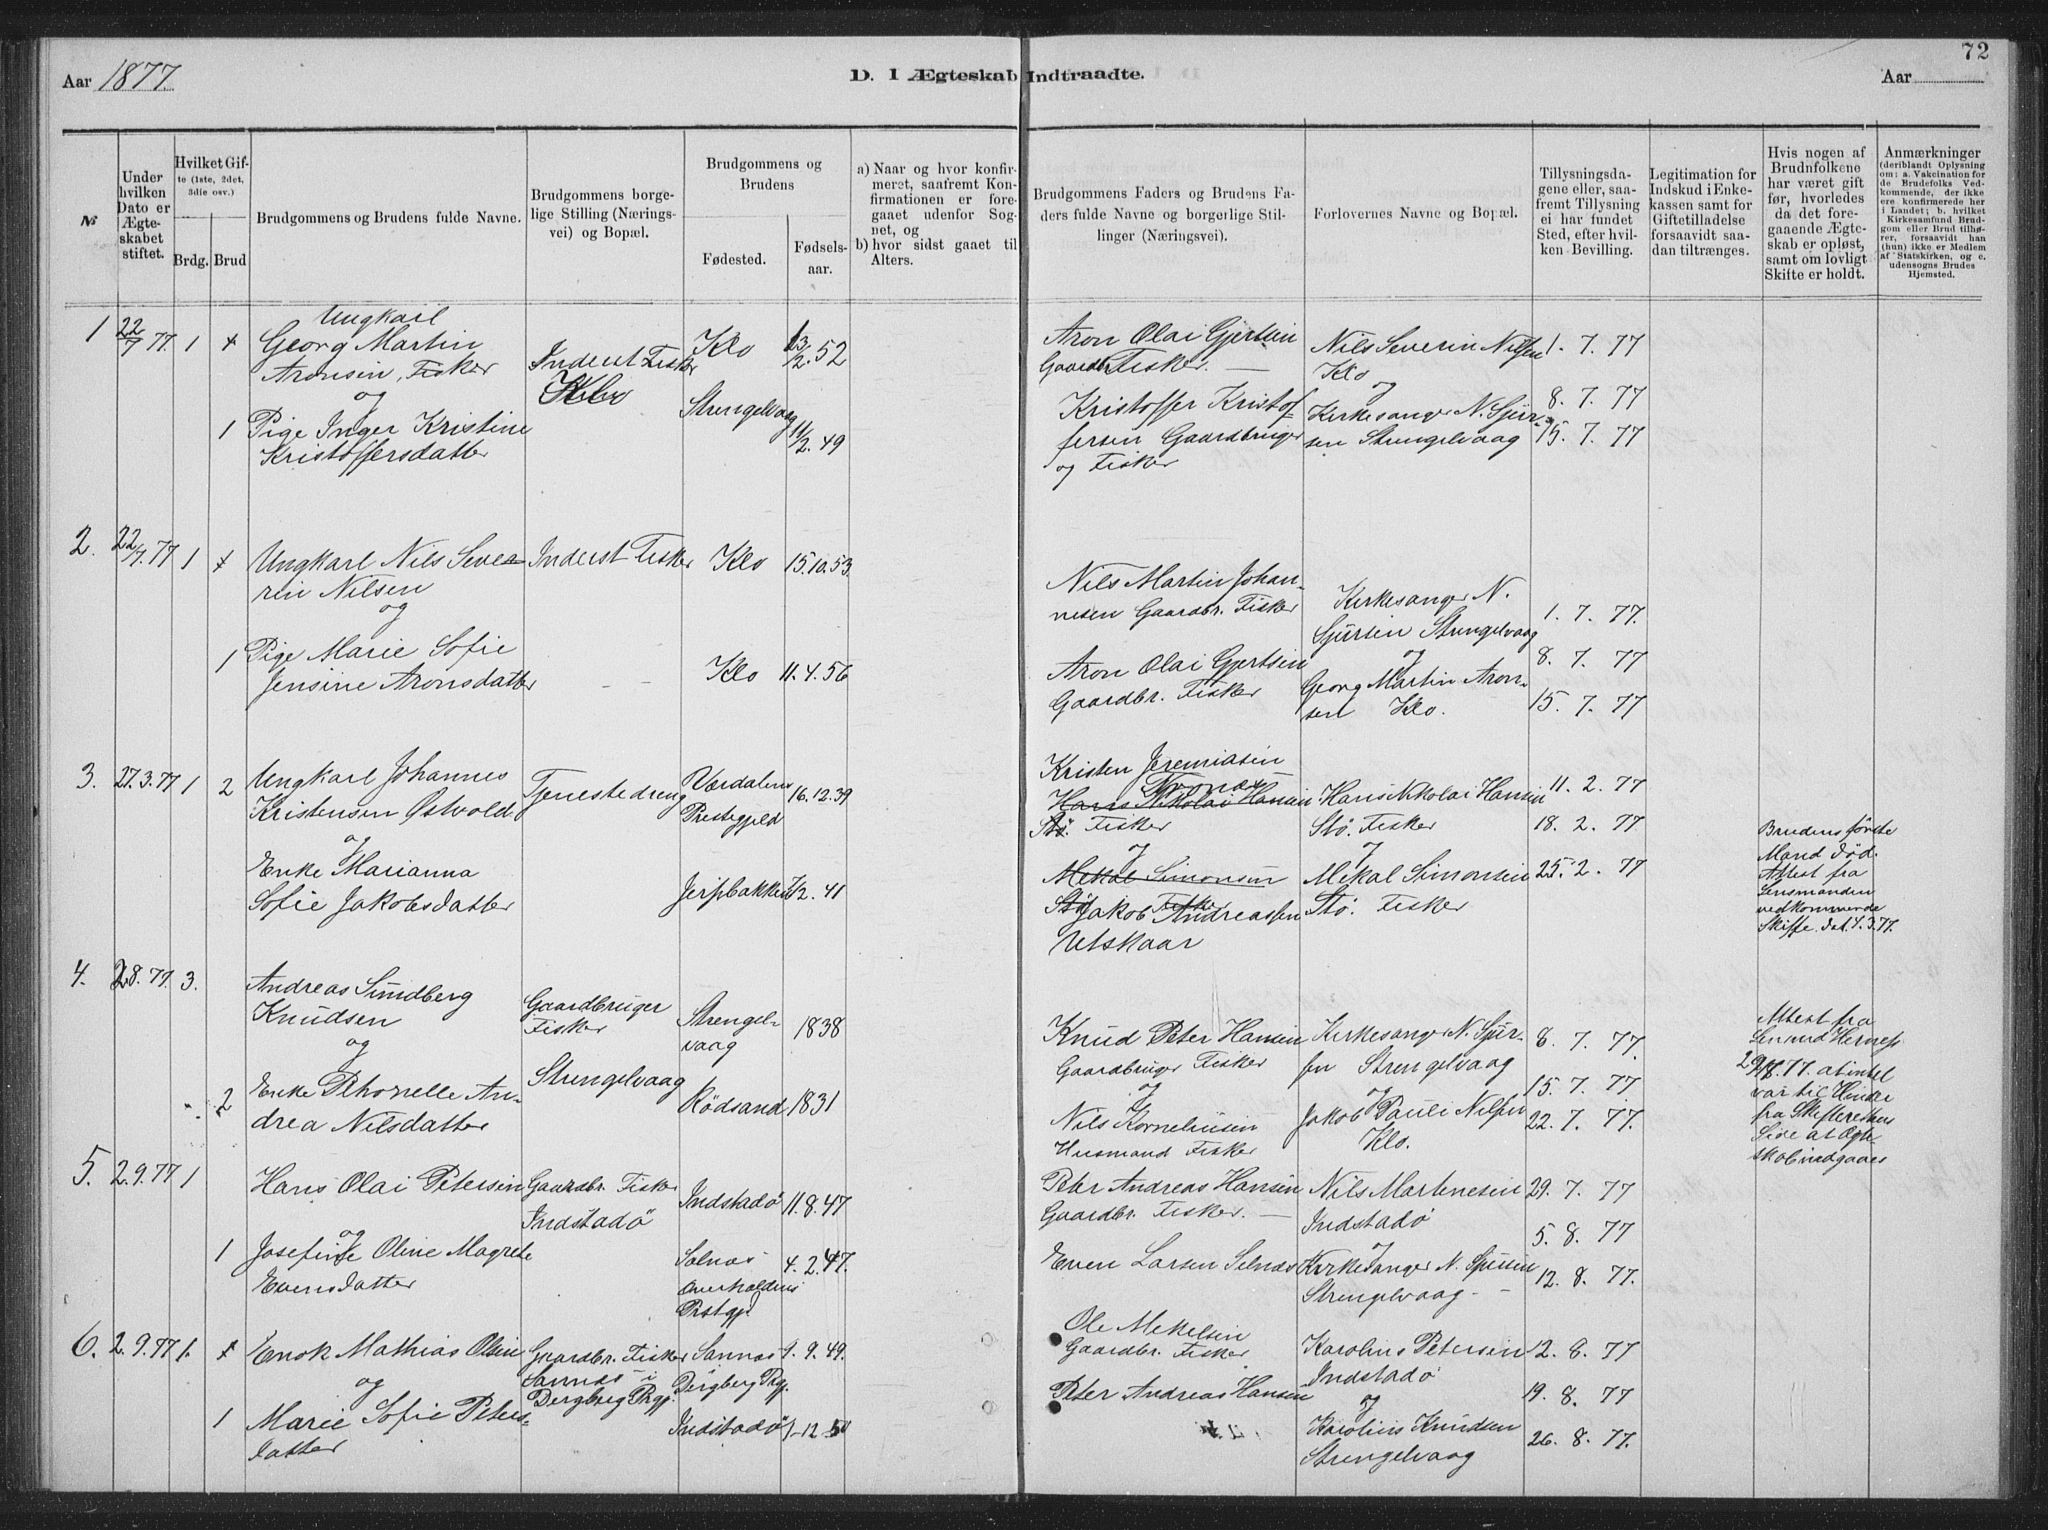 Aar 1877.
D. I Ægteskab Indtraadte.
72
Aar
№
Under hvilken Dato er Ægteskabet stiftet.
Hvilket Gifte (1ste, 2det, 3die osv.)
Brdg.
Brud
Brudgommens og Brudens fulde Navne.
Brudgommens borgelige Stilling (Næringsvei) og Bopæl.
Brudgommens og Brudens
Fødested.
Fødselsaar.
a) Naar og hvor konfirmeret, saafremt Konfirmationen er foregaaet udenfor Sognet, og
b) hvor sidst gaaet til Alters.
Brudgommens Faders og Brudens Faders fulde Navne og borgerlige Stillinger (Næringsvei).
Forlovernes Navne og Bopæl.
Tillysningsdagene eller, saafremt Tillysning ei har fundet Sted, efter hvilken Bevilling.
Legitimation for Indskud i Enkekassen samt for Giftetilladelse forsaavidt saadan tiltrænges.
Hvis nogen af Brudnfolkene har været gift før, hvorledes da det foregaaende Ægteskab er opløst, samt om lovligt Skifte er holdt.
Anmærkninger
(deriblandt Oplysning om: a. Vakcination for de Brudefolks Vedkommende, der ikke ere konfirmerede her i Landet; b. hvilket Kirkesamfund Brudgom eller Brud tilhører, forsaavidt han (hun) ikke er Medlem af Statskirken, og c. udensogns Brudes Hjemsted.
1 22/7 77 1 +
Ungkarl
Georg Martin
Aronsen, Fisker
og
1 Pige Inger Kristine
Kristoffersdatter
Inderst Fisker
Klo
Klo 13/2. 52
Strengelvaag 11/2. 49
Aron Olai Gjertsen
Gaardbr. Fisker. —
Kristoffer Kristof-
fersen Gaardbruger
og Fisker
Nils Severin Nilsen
Klo
og
Kirkesanger N. Sjur-
sen Strengelvaag
1. 7. 77
8. 7. 77
15. 7. 77
2. 22/7. 77 1 +
Ungkarl Nils Seve-
rin Nilsen
og
1 Pige Marie Sofie
Jensine Aronsdatter
Inderst Fisker
Klo 15.10.53.
Klo 11. 4. 56
Nils Martin Johan-
nesen Gaardbr. Fisker
Aron Olai Gjertsen
Gaardbr. Fisker
Kirkesanger N.
Sjursen Strengelvaag
og
Georg Martin Aron-
sen Klo.
1. 7. 77.
8. 7. 77
15. 7. 77
3. 27.3.77 1 2
Ungkarl Johannes
Kristensen Østvold
og
Enke Marianna
Sofie Jakobsdatter
Tjenestedreng
Værdalens
Prestegjeld
16.12.39
Jerpbakken /2. 41
Kristen Jeremiasen
Hans Nikolai Hansen
Stø. Fisker
og
Mekal Simonsen
Stø Fisker
Jakob Andreassen
Utskaar
Hans Nikolai Hansen
Stø. Fisker
og
Mekal Simonsen
Stø. Fisker
11. 2. 77
18. 2. 77
25. 2. 77
Brudens første
Mand død.
Attest fra
Lensmanden
vedkommende
Skifte dat. 4.3.77.
4. 28.77. 3.
Andreas Sundberg
Knudsen
og
2 Enke Pthonelle An-
drea Nilsdatter
Gaardbruger
Fisker
Strengelvaag
Strengel-
vaag 1838
Rödsand 1831
Knud Peter Hansen
Gaardbruger Fisker
og
Nils Korneliusen
Husmand Fisker
Kirkesanger N. Sjur-
sen Strengelvaag
og
Jakob Pauli Nilsen
Klo.
8. 7. 77.
15. 7. 77.
22. 7. 77.
Attest fra
Lensmd Herness
77. at intet
var til Hinder
fra Skifterettens
Side at Ægte-
skab indgaaes
5. 2.9.77 1
Hans Olai Petersen
og
1 Josefine Oline Magrete
Evensdatter
Gaardbr. Fisker
Indstadø
Indstadö 11.8.47
Selnæs
Overhaldens
Prstgj.
4.2.47.
Peter Andreas Hansen
Gaardbr. Fisker. —
Even Larsen Selnæs
Nils Martenesen
Indstadö
og
Kirkesanger N. Sjursen
Strengelvaag —
29. 7. 77
5. 8. 77
12. 8. 77.
6. 2.9.77 1. +
Enok Mathias Olsen
og
1 Marie Sofie Peters-
datter
Gaardbr. Fisker
Sannæs i
Dergberg Prgj.
Sannæs
Dergberg Pgj. 9. 9. 49.
Indstadö /-12-50
Ole Mekelsen
Gaardbr. Fisker
Peter Andreas Hansen
Karolius Petersen
Indstadö
og
Karolius Knudsen
Strengelvaag
12. 8. 77
19. 8. 77
26. 8. 77.